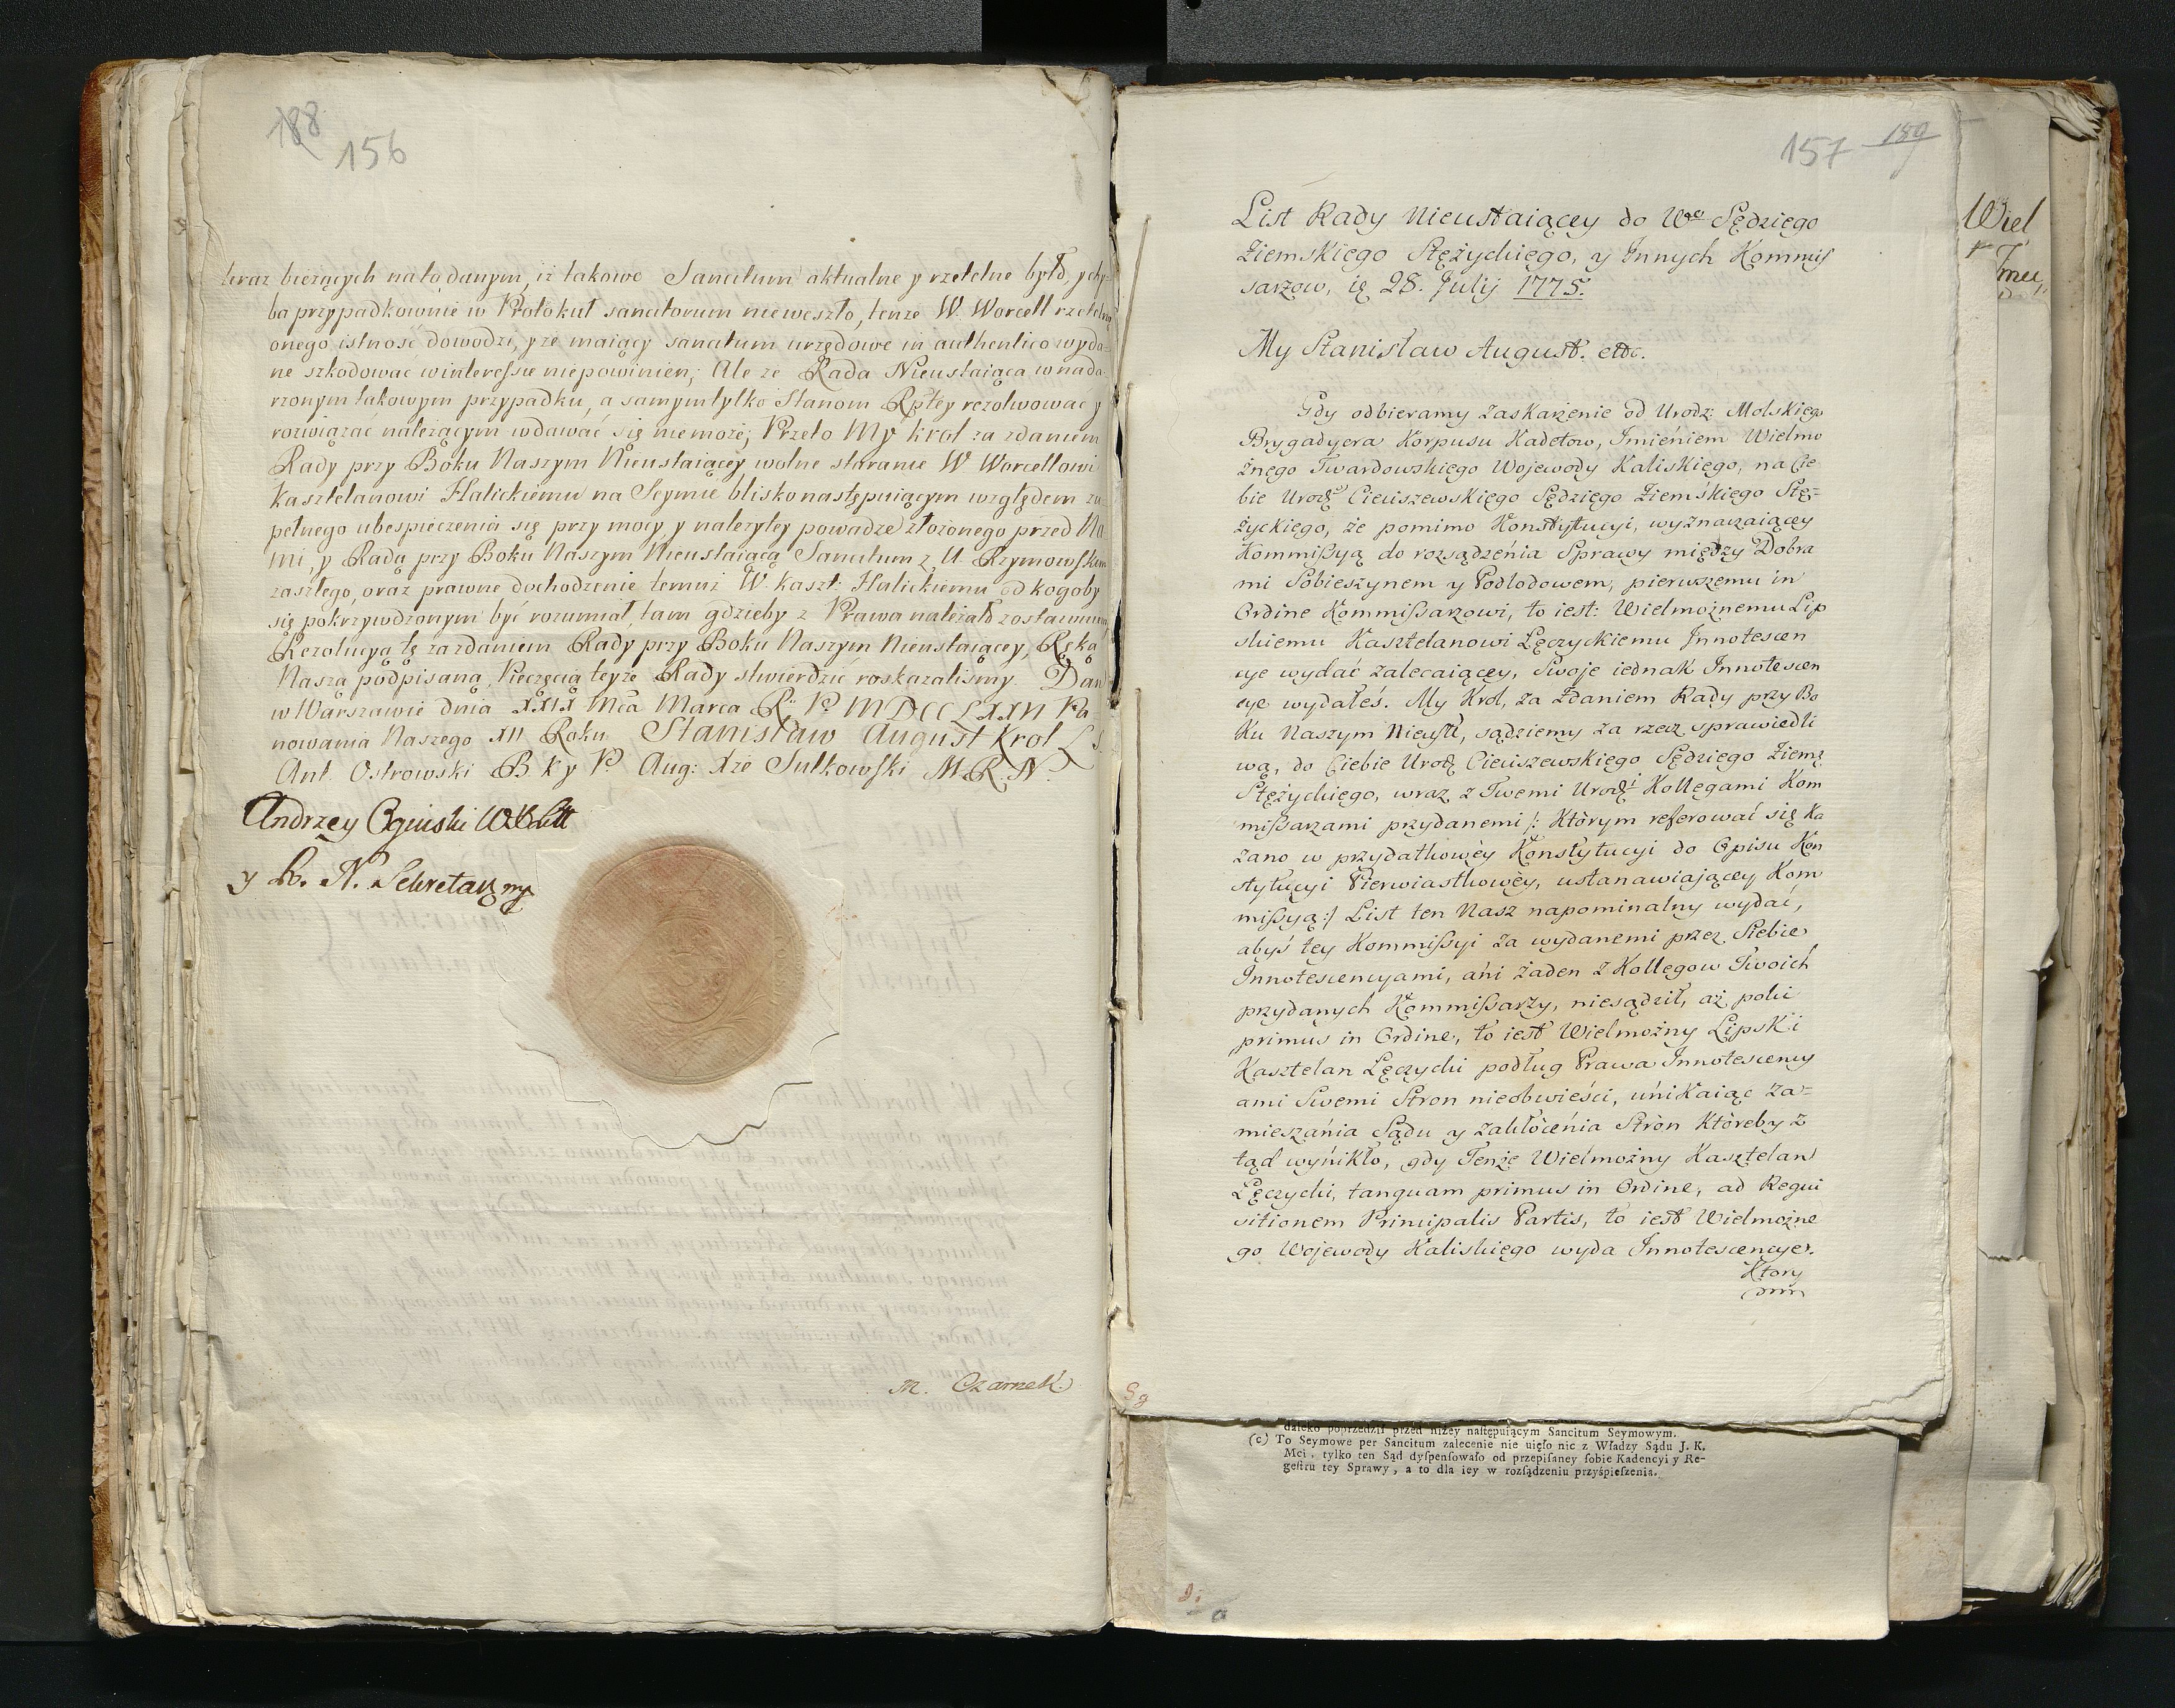 188
156
teraz bieżących na to danym, iż takowe Sancitum aktualne y rzetelne było, y chy-
ba przypadkownie w Protokuł sancitorum nieweszło, tenze W. Worcell rzetelną
onego istność dowodzi, y ze maiący sancitum urzędowe in authentico wyda-
ne szkodować w interessie niepowinien; Ale ze Rada Nieustaiąca w nada-
rzonym takowym przypadku, a samym tylko Stanom Rptey rezolwować y
rozwiązać należącym wdawać się niemoże; Przeto My Krol za zdaniem
Rady przy Boku Naszym Nieustaiącey, wolne staranie W Worcellowi
Kasztelanowi Halickiemu na Seymie blisko następuiącym względem zu-
pełnego ubespieczenia się przy mocy y nalezytey powadze złożonego przed Na-
mi, y Radą przy Boku Naszym Nieustaiącą Sancitum z U. Rzymowskim
zaszłego, oraz prawne dochodzenie temuż W. Kaszt: Halickiemu od kogoby
się pokrzywdzonym być rozumiał, tam gdzieby z Prawa należało zostawuiemy
Rezolucyą tę za zdaniem Rady przy Boku Naszym Nieustaiącey, Ręką
Naszą podpisaną, Pieczęcią teyże Rady stwierdzić roskazalismy. Dan
w Warszawie dnia XXIX Mca Marca R. P. MDCCLXXVI Pa
nowania Naszego XII Roku Stanisław August Krol L S
Ant. Ostrowski B. K y P. Aug: Xże Sułkowski M. R. N.
Andrzey Oginski
y R. N. Sekretarz mp
M. Czarnek.
157 189
List Rady Nieustaiącey do Wgo Sędziego
Ziemskiego Stężyckiego, y Innych Kommis
sarzow, ię 28. Julij 1775.
My Stanisław August. etc.
Gdy odbieramy zaskarżenie od Urodz: Molskiego
Brygadyera Korpusu Kadetow, Imieniem Wielmo
żnego Twardowskiego Wojewody Kaliskiego, na Cie
bie Urodz Cieciszewskiego Sędziego Ziemskiego Stęż-
życkiego, że pomimo Konstytucyi, wyznaczaiącey
Kommissyą do rozsądzenia Sprawy między Dobra
mi Sobieszynem y Podlodowem, pierwszemu in
Ordine Kommissarzowi, to iest: Wielmożnemu Lip
skiemu Kasztelanowi Łęczyckiemu Innotescen
cye wydać zalecaiącey, Swoje iednak Innotescen
cye wydałeś. My Krol, za Zdaniem Rady przy Bo
ku Naszym Nieust, sądziemy za rzecz sprawiedli
wą, do Ciebie Urodz Cieciszewskiego Sędziego Ziemg
Stężyckiego, wraz z Twemi Urodz Kollegami Kom
missarzami przydanemi /: Ktòrym referować się ka
zano w przydatkowèy Konstytucyi do Opisu Kon
stytucyi Pierwiastkowèy, ustanawiającey Kom
missyą :/ List ten Nasz napominalny wydać,
abyś tey Kommissyi za wydanemi przez Siebie
Innotescencyami, ani żaden z Kollegow Twoich
przydanych Kommissarzy, niesądził, aż poki
primus in Ordine, to iest Wielmożny Lipski
Kasztelan Łęczycki podług Prawa Innotescency
ami Swemi Stron nieobwieści, unikaiąc za-
mieszania Sądu y zakłòcenia Stròn Ktòreby z
tąd wynikło, gdy Tenże Wielmożny Kasztelan
Łęczycki, tanquam primus in Ordine, ad Requi
sitionem Principalis Partis, to iest Wielmożne
go Wojewody Kaliskiego wyda Innotescencye.
Ktory
Wiel
daleko poprzedził przed niżey następuiącym Sancitum Seymowym.
(c) To Seymowe per Sancitum zalecenie nie uięło nic z Władzy Sądu J. K.
Mci, tylko ten Sąd dyspensowało od przepisaney sobie Kadencyi y Re-
gestru tey Sprawy, a to dla iey w rozsądzeniu przyśpieszenia.